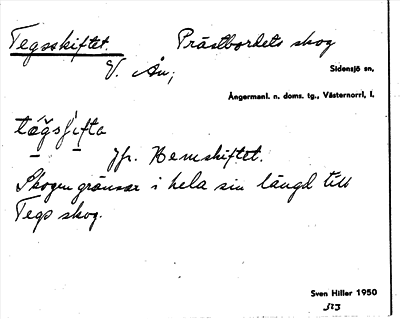 Tegsskiftet. Prästbordets skog
V. Ån;
Sidensjö sn,
Ångermanl. n. doms. tg., Västernorrl. l.
tǣgsʃifta
Jfr. Hemskiftet.
Skogen gränsar i hela sin längd till
Tegs skog.
Sven Hiller 1950